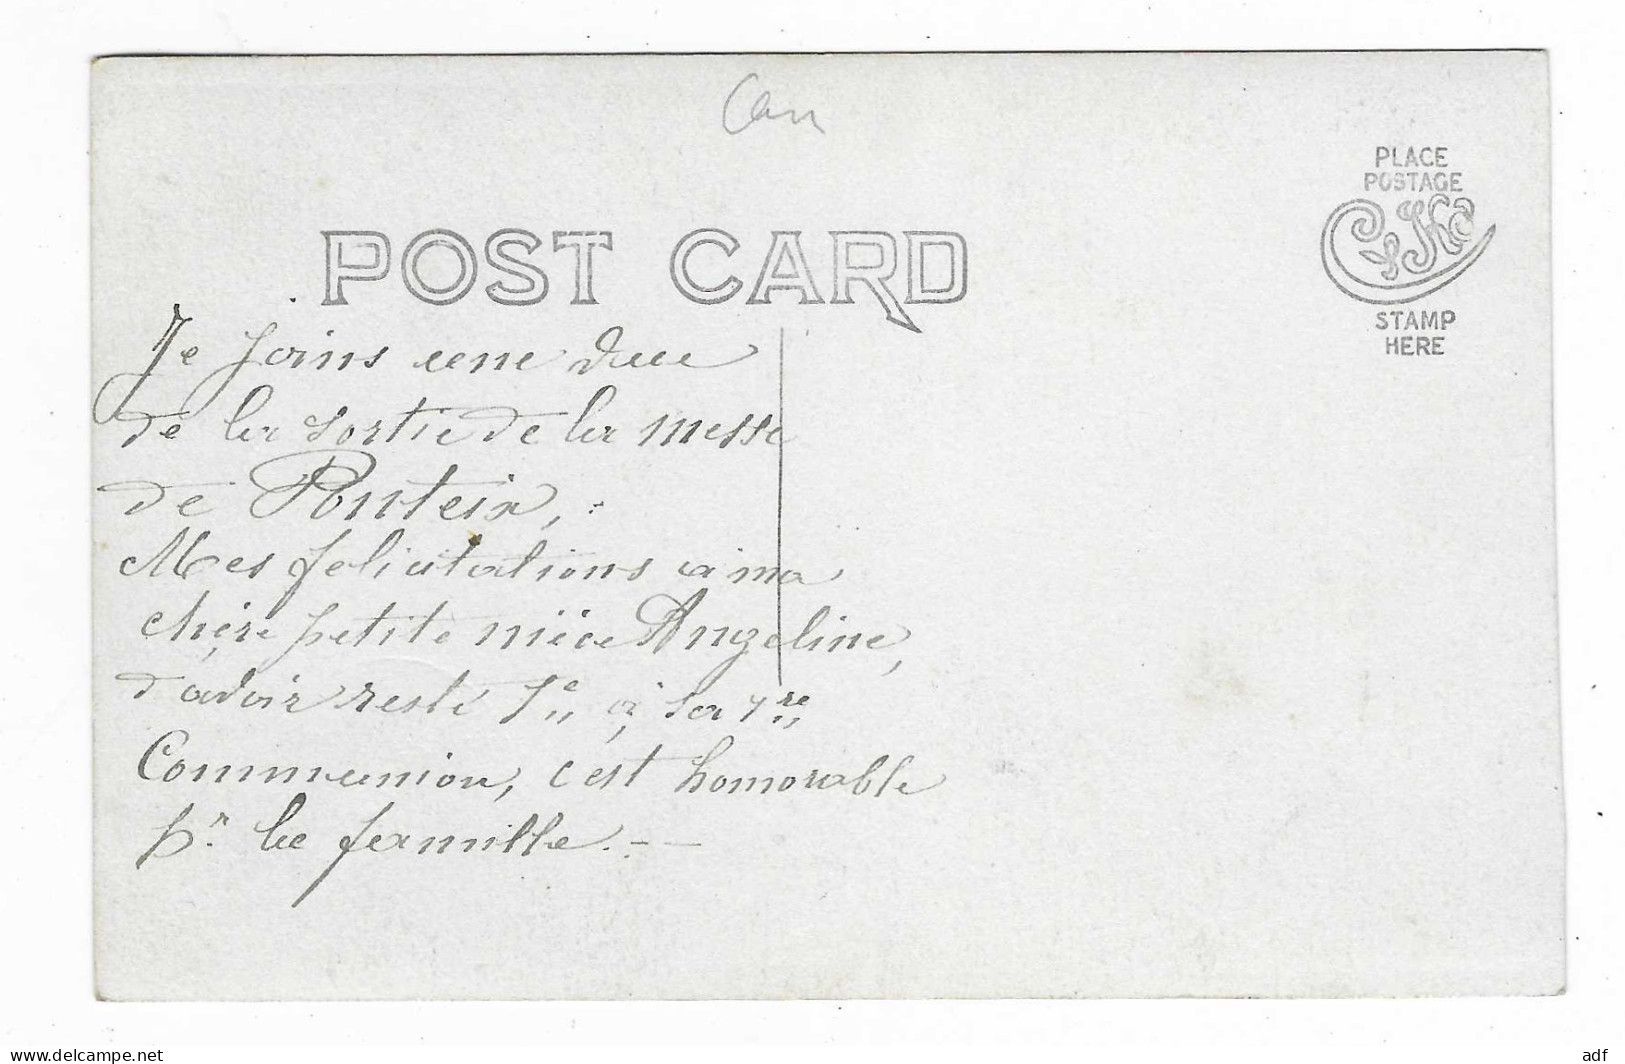 Can
PLACE
POSTAGE
STAMP
HERE
POST CARD
Je joins une vue
de la sortie de la messe
de Ponteix,
Mes felicitations à ma
chère petite nièce Angeline,
d'avoir resté 1e à sa 1re
Communion, c'est homorable
pr la famille.--
www.delcampe.net
adf